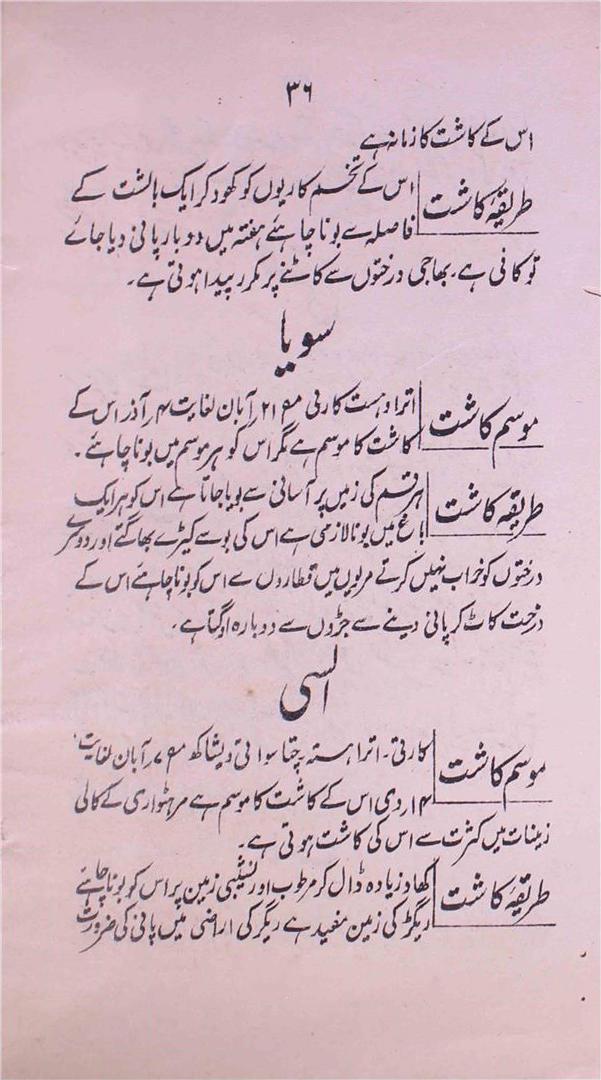 ۳۶
اس کے کاشت کا زمانہ ہے
طریقۂ کاشت اس کے تخم کاریوں کو کھود کر ایک بالشت کے
فاصلہ سے بونا چاہئے ہفتہ میں دو بار پانی دیا جائے
تو کافی ہے۔ بھاجی درختوں سے کاٹنے پر مکرر پیدا ہوتی ہے۔
سویا
موسم کاشت اترا وہست کارتی ۲۱ آبان لغایت ۴ آذر اس کے
کاشت کا موسم ہے مگر اس کو ہر موسم میں بونا چاہئے۔
طریقہ کاشت ہر قسم کی زمین پر آسانی سے بویا جاتا ہے اس کو ہر ایک
باغ میں بونا لازمی ہے اس کی بو سے کیڑے بھاگتے اور دوسرے
درختوں کو خراب نہیں کرتے مریوں میں قطاروں سے اس کو بونا چاہئے اس کے
درخت کاٹ کر پانی دینے سے جڑوں سے دوبارہ اوگتا ہے۔
السی
موسم کاشت کارتی۔ اترا ہستہ چتا سواتی ویشاکھ ۷ آبان لغایت
۱۴ اردی اس کے کاشت کا موسم ہے مرہٹواری کے کالی
زمینات میں کثرت سے اس کی کاشت ہوتی ہے۔
طریقۂ کاشت کھاد زیادہ ڈال کر مرطوب اور نشیبی زمین پر اس کو بونا چاہئے
ریگڑ کی زمین مفید ہے ریگر کی اراضی میں پانی کی ضرورت